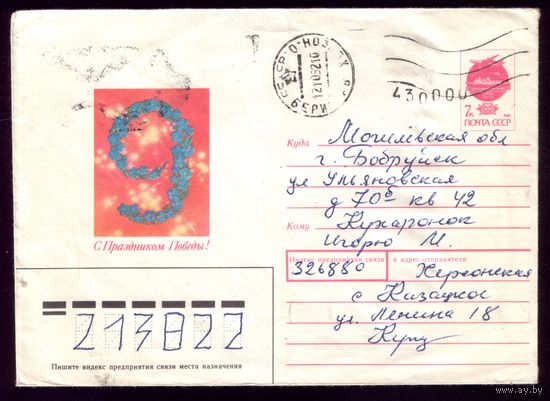 430000
7к
ПОЧТА СССР
Куда Могилевская обл
г. Бобруйск
ул Ульяновская
д 70а кв 42
Кому Кухаронок
Игорю И.
С Праздником Победы!
Индекс предприятия связи и адрес отправителя
326880 Херсонская
с Казацкое
ул. Ленина 18
213822
Пишите индекс предприятия связи места назначения
www.ay.by